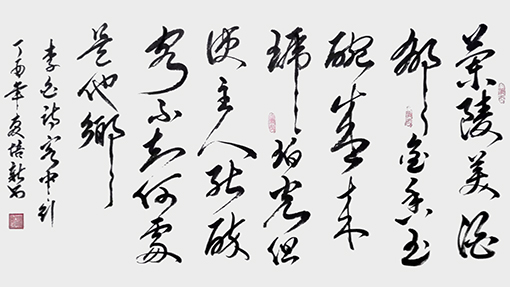 蘭陵美酒
郁金香玉
碗盛来
琥珀光但
使主人能醉
客不知何處
是他鄉
李白诗客中行
丁酉年夏培新书